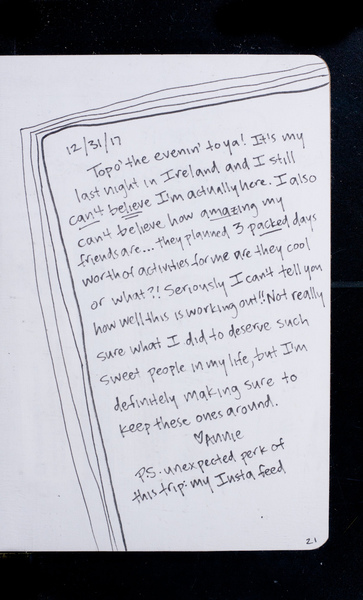 12/31/17
Topo' the evenin' to ya! It's my
last night in Ireland and I still
can't believe I'm actually here. I also
can't believe how amazing my
friends are... they planned 3 packed days
worth of activities for me are they cool
or what?! Seriously I can't tell you
how well this is working out!! Not really
sure what I did to deserve such
sweet people in my life, but I'm
definitely making sure to
keep these ones around.
♡ANNIE
P.S. unexpected perk of
this trip: my Insta feed
21